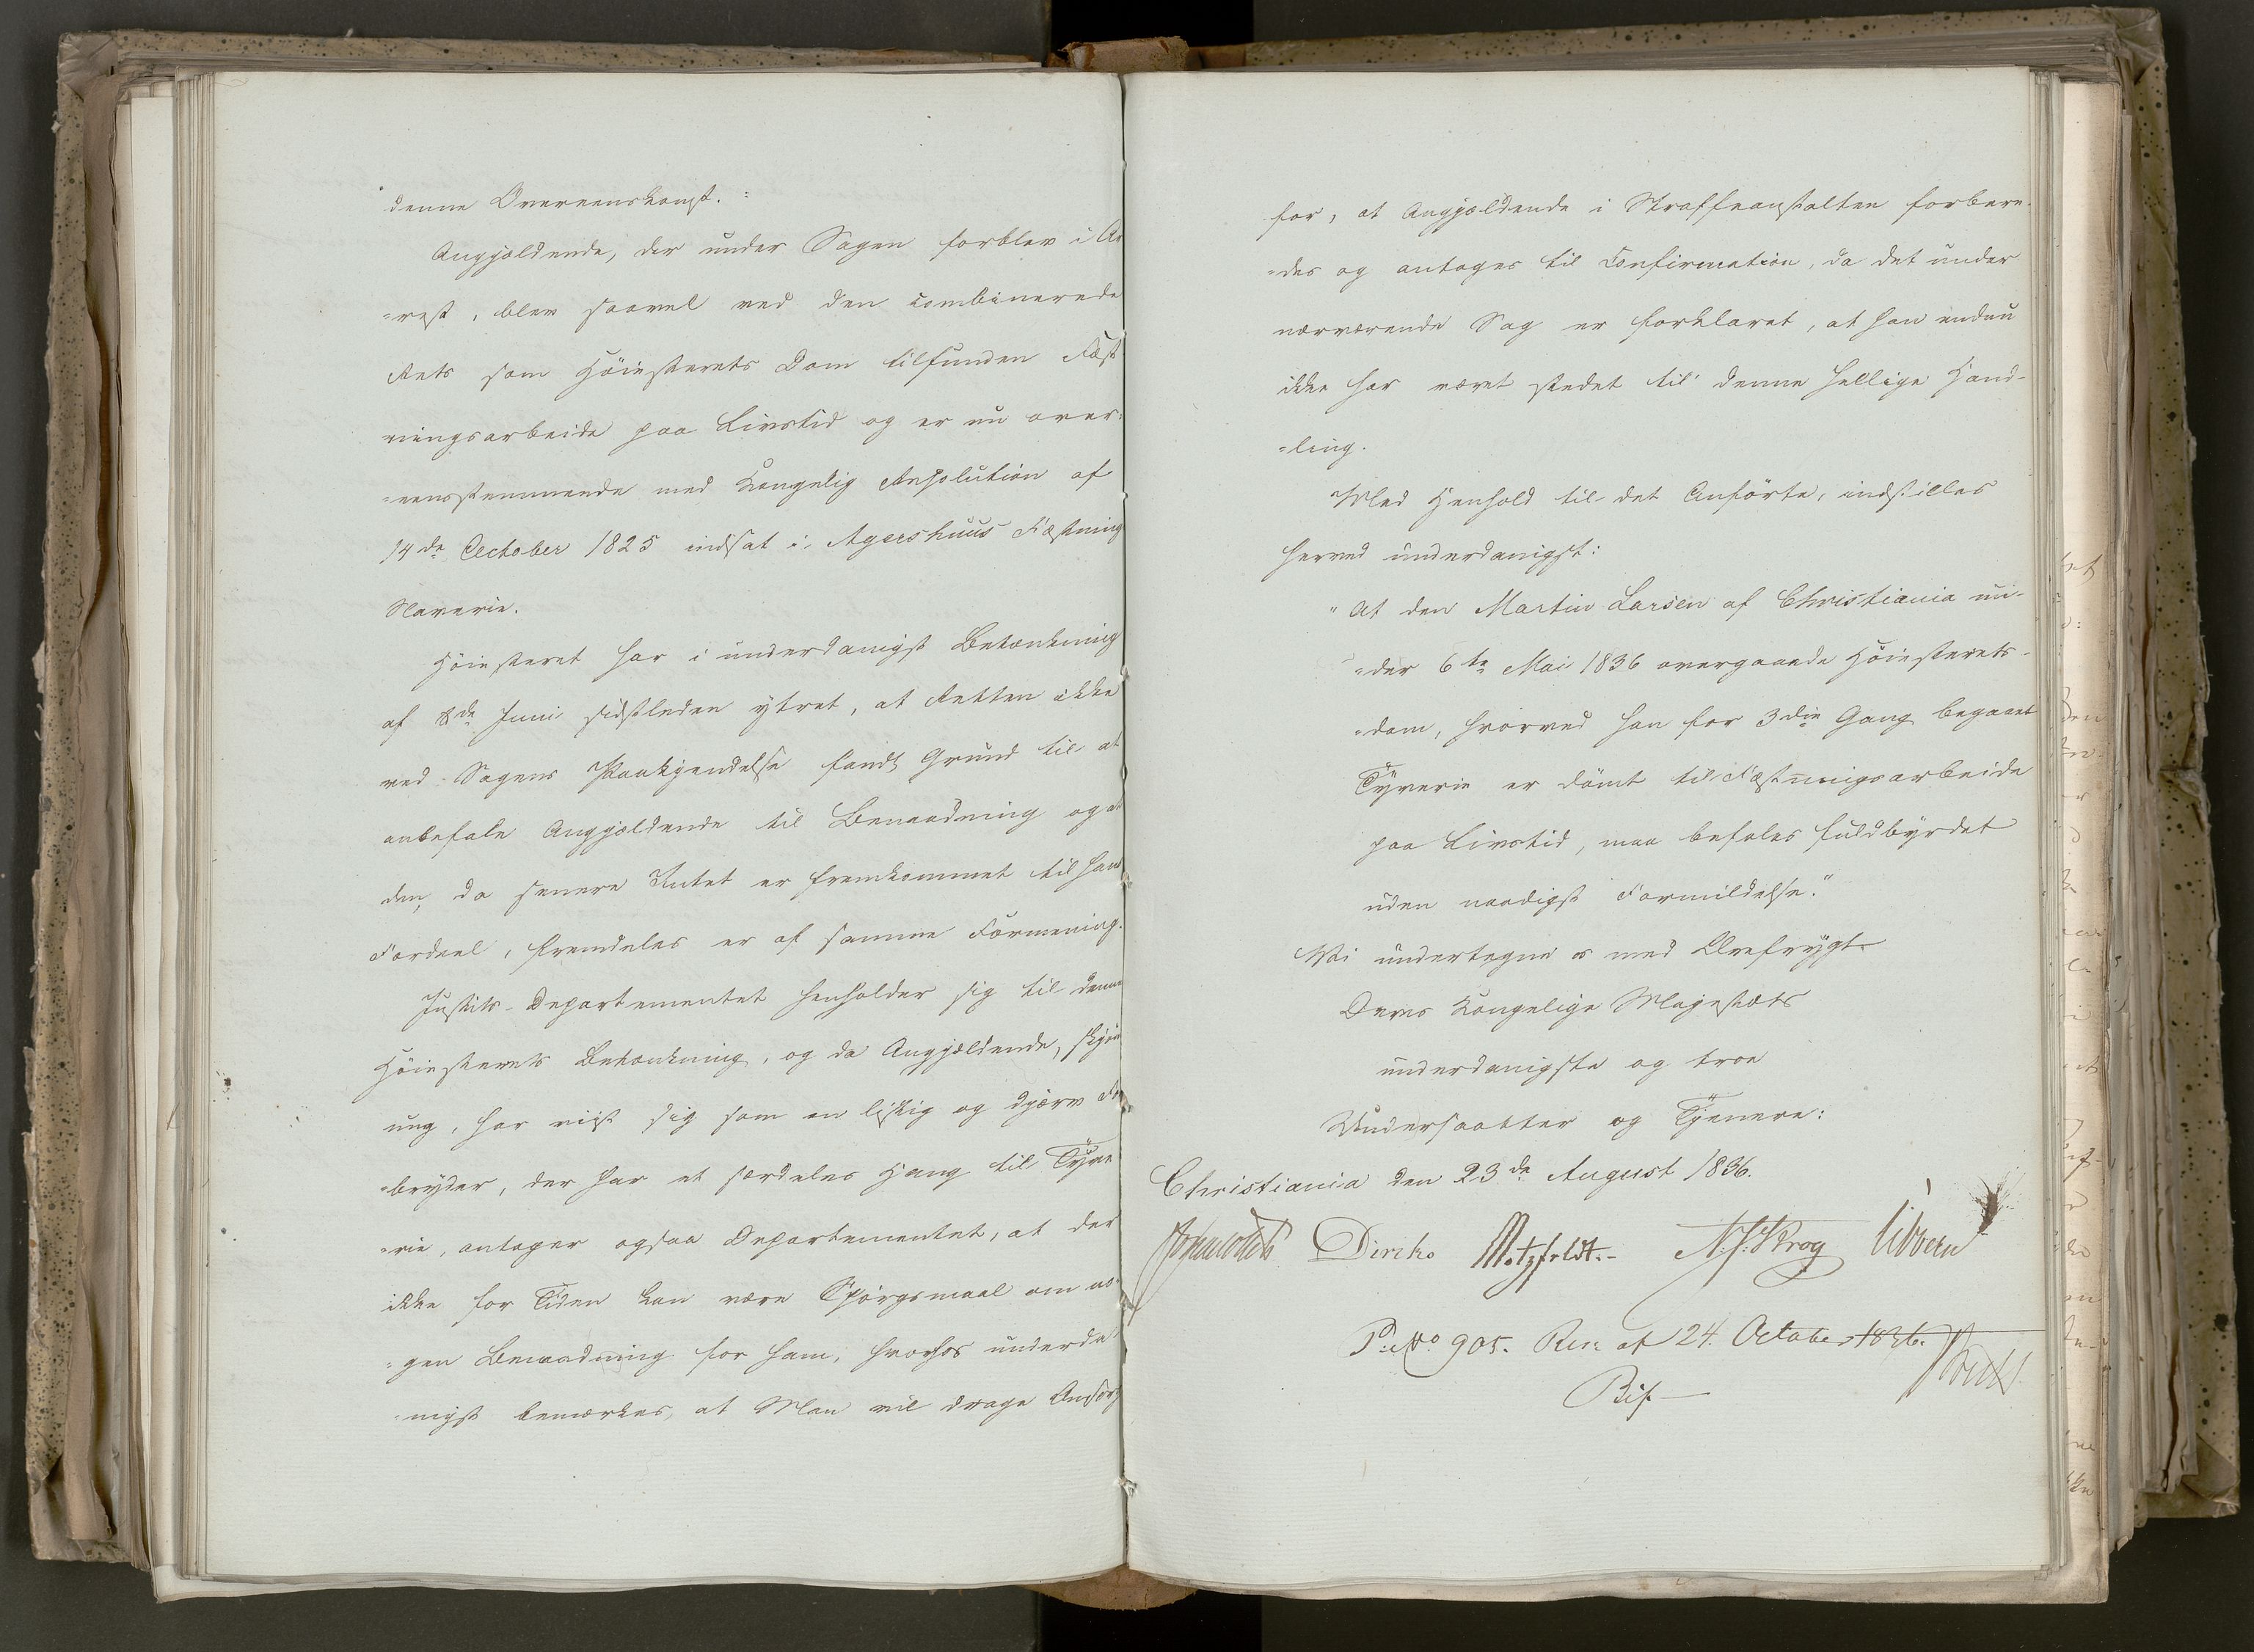 denne Overeenskomst.:
Angjældende, der under Sagen forblev i Ar
=rest, blev saavel ved den combinerede
Rets som Høiesterets Dom tilfunden Fæst
ningsarbeide paa Livstid og er nu over=
=eensstemmende med Kongelig Resolution af
14de October 1825 indsat i Agershuus Fæstning
Slaverie.
Høiesteret har i underdanigst Betænkning
af 8de Juni sidstleden ytret, at Retten ikke
ved Sagens Paakjendelse fandt Grund til at
anbefale Angjældende til Benaadning og at
den, da senere Intet er fremkommet til hans
Fordeel, fremdeles er af samme Formening.
Justits-Departementet henholder sig til denne
Høiesterets Betænkning, og da Angjældende, skjøn
ung, har viist sig som en listig og djærv For
=bryder, der har et særdeles Hang til Tyve
=rie, antager ogsaa Departementet, at der
ikke for Tiden kan være Spørgsmaal om no
=gen Benaadning for ham, hvorhos underda
=nigst bemærkes, at Man vil drage Omsorg
for, at Angjældende i Straffeanstalten forbere=
=des og antages til Confirmation, da det under
nærværende Sag er forklaret, at han endnu
ikke har været stedet til denne hellige Hand-
=ling.
Med Henhold til det Anførte, indstilles
herved underdanigst:
"At den Martin Larsen af Christiania un-
=der 6te Mai 1836 overgaaede Høiesterets-
=dom, hvorved han for 3die Gang begaaet
Tyverie er dømt til Fæstningsarbeide
paa Livstid, maa befales fuldbyrdet
uden naadigst Formildelse."
Vi undertegne os med Ærefrygt
Deres Kongelige Majestæts
underdanigste og troe
Undersaatter og Tjenere:
Christiania den 23de August 1836.
Diriks Motzfeldt.- N. J. Krog Vibe
P. No 905. Res. af 24. October 1836.